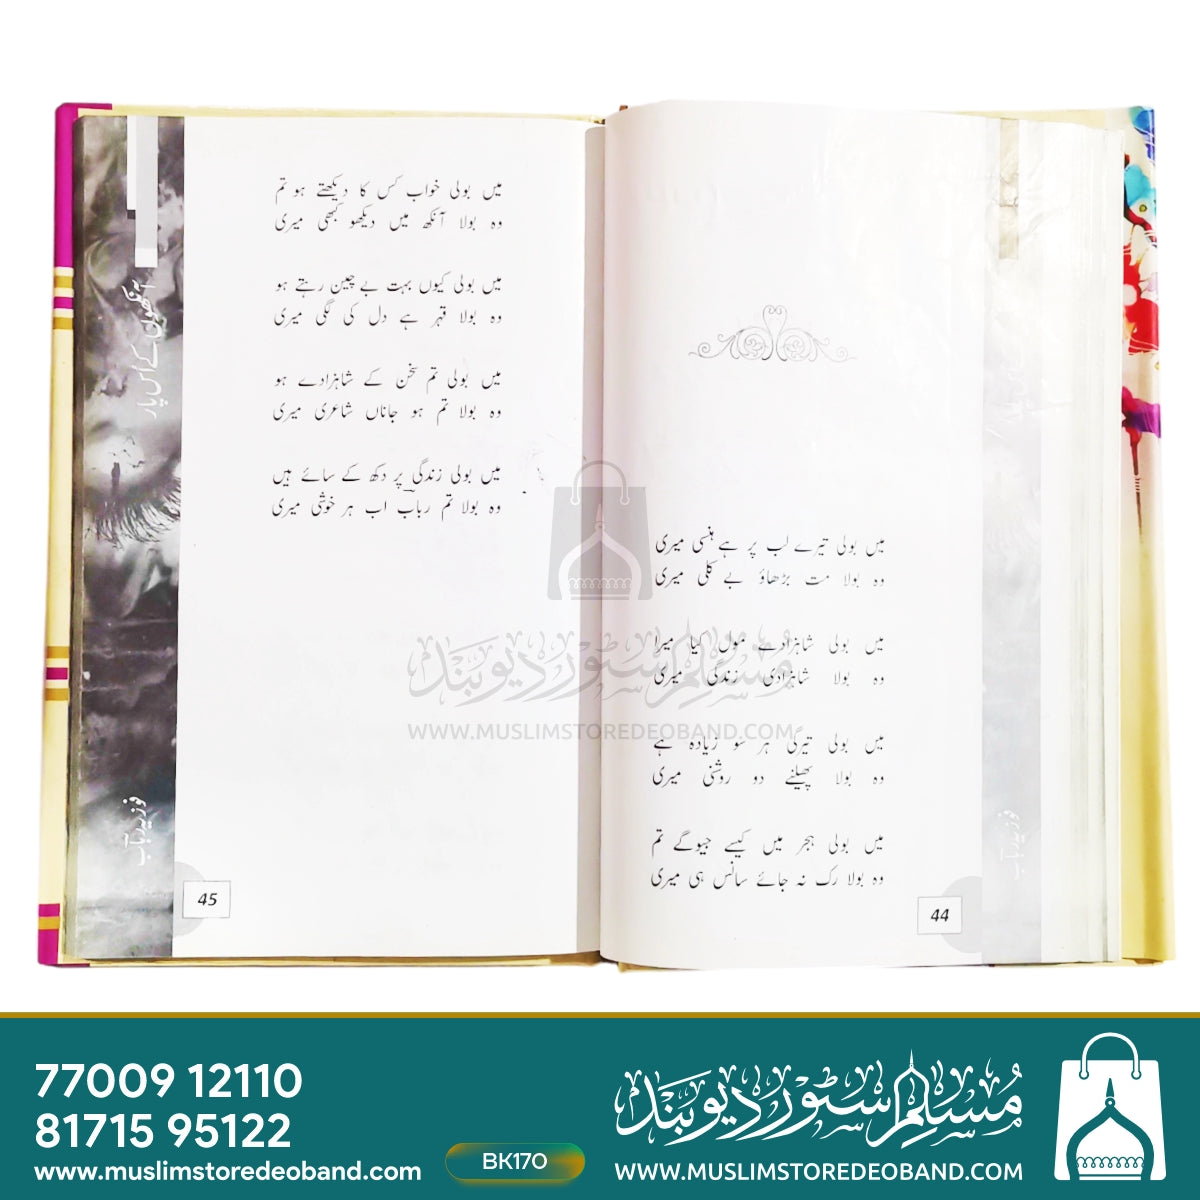 میں بولی تیرے لب پر ہے ہنسی میری
وہ بولا مت بڑھاؤ بے کلی میری
میں بولی شاہزادے مول کیا میرا
وہ بولا شاہزادی زندگی میری
میں بولی تیرگی ہر سو زیادہ ہے
وہ بولا پھیلنے دو روشنی میری
میں بولی ہجر میں کیسے جیوگے تم
وہ بولا رک نہ جائے سانس ہی میری
44
فوزیہ رباب
میں بولی خواب کس کا دیکھتے ہو تم
وہ بولا آنکھ میں دیکھو کبھی میری
میں بولی کیوں بہت بے چین رہتے ہو
وہ بولا قہر ہے دل کی لگی میری
میں بولی تم سخن کے شاہزادے ہو
وہ بولا تم ہو جاناں شاعری میری
میں بولی زندگی پر دکھ کے سائے ہیں
وہ بولا تم رباب اب ہر خوشی میری
آنکھوں کے اس پار
فوزیہ رباب
45
مسلم سٹور دیوبند
WWW.MUSLIMSTOREDEOBAND.COM
77009 12110
81715 95122
www.muslimstoredeoband.com
BK170
مسلم سٹور دیوبند
WWW.MUSLIMSTOREDEOBAND.COM